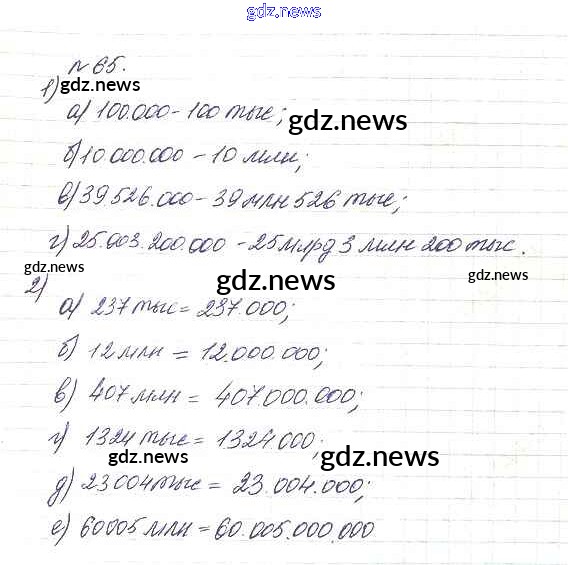 gdz.ru
№65.
1) gdz.ru
а) 100.000 - 100 тыс;
gdz.ru
б) 10 000.000 - 10 млн;
в) 39 526.000 - 39 млн 526 тыс;
г) 25.003.200.000 - 25 млрд 3 млн 200 тыс.
gdz.ru gdz.ru gdz.ru
2)
а) 237 тыс = 237.000;
б) 12 млн = 12.000.000;
в) 407 млн = 407 000.000;
г) 1324 тыс = 1324 000;
gdz.ru gdz.ru
д) 23 004 тыс = 23.004.000;
е) 60005 млн = 60.005.000.000